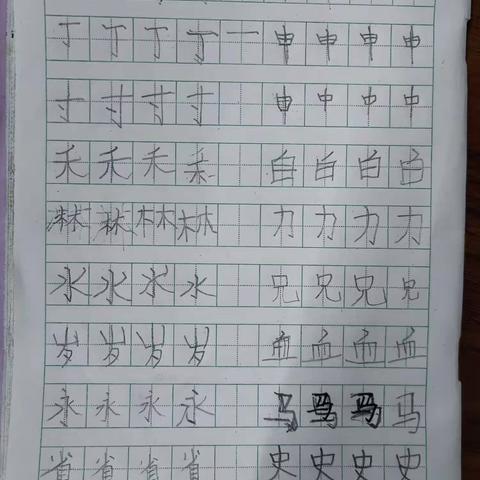 丁 丁 丁 丁 一 申 申 申 申
寸 寸 寸 寸 中 中 中
禾 禾 禾 白 白 白 白
林 林 力 力 力 力
水 水 水 水 兄 兄 兄 兄
岁 岁 岁 岁 血 血 血 血
永 永 永 永 马 马 马 马
省 省 省 省 史 史 史 史